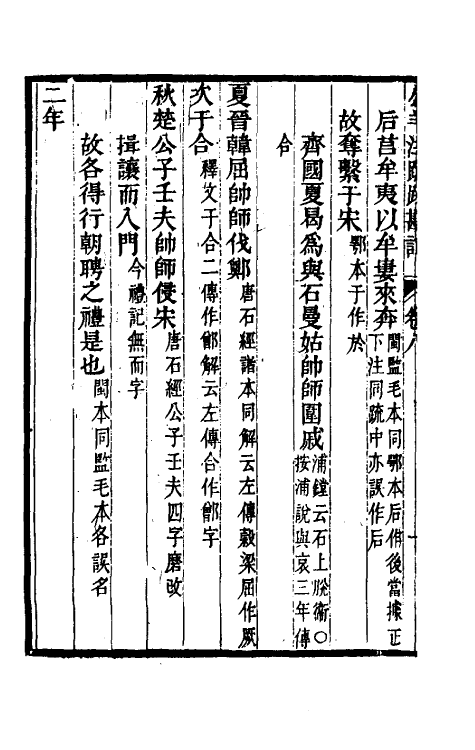 后莒牟夷以牟婁來奔 閩監毛本同鄂本后作後當據正下注同疏中亦誤作后
故奪繫于宋 鄂本于作於
齊國夏曷爲與石曼姑帥師圍戚 浦鏜云石上脫衛〇按浦說與哀三年傳
合
夏晉韓屈帥師伐鄭 唐石經諸本同解云左傳穀梁屈作厥
次于合 釋文于合二傳作鄫解云左傳合作鄫字
秋楚公子壬夫帥師侵宋 唐石經公子壬夫四字磨改
揖讓而入門 今禮記無而字
故各得行朝聘之禮是也 閩本同監毛本各誤名
二年